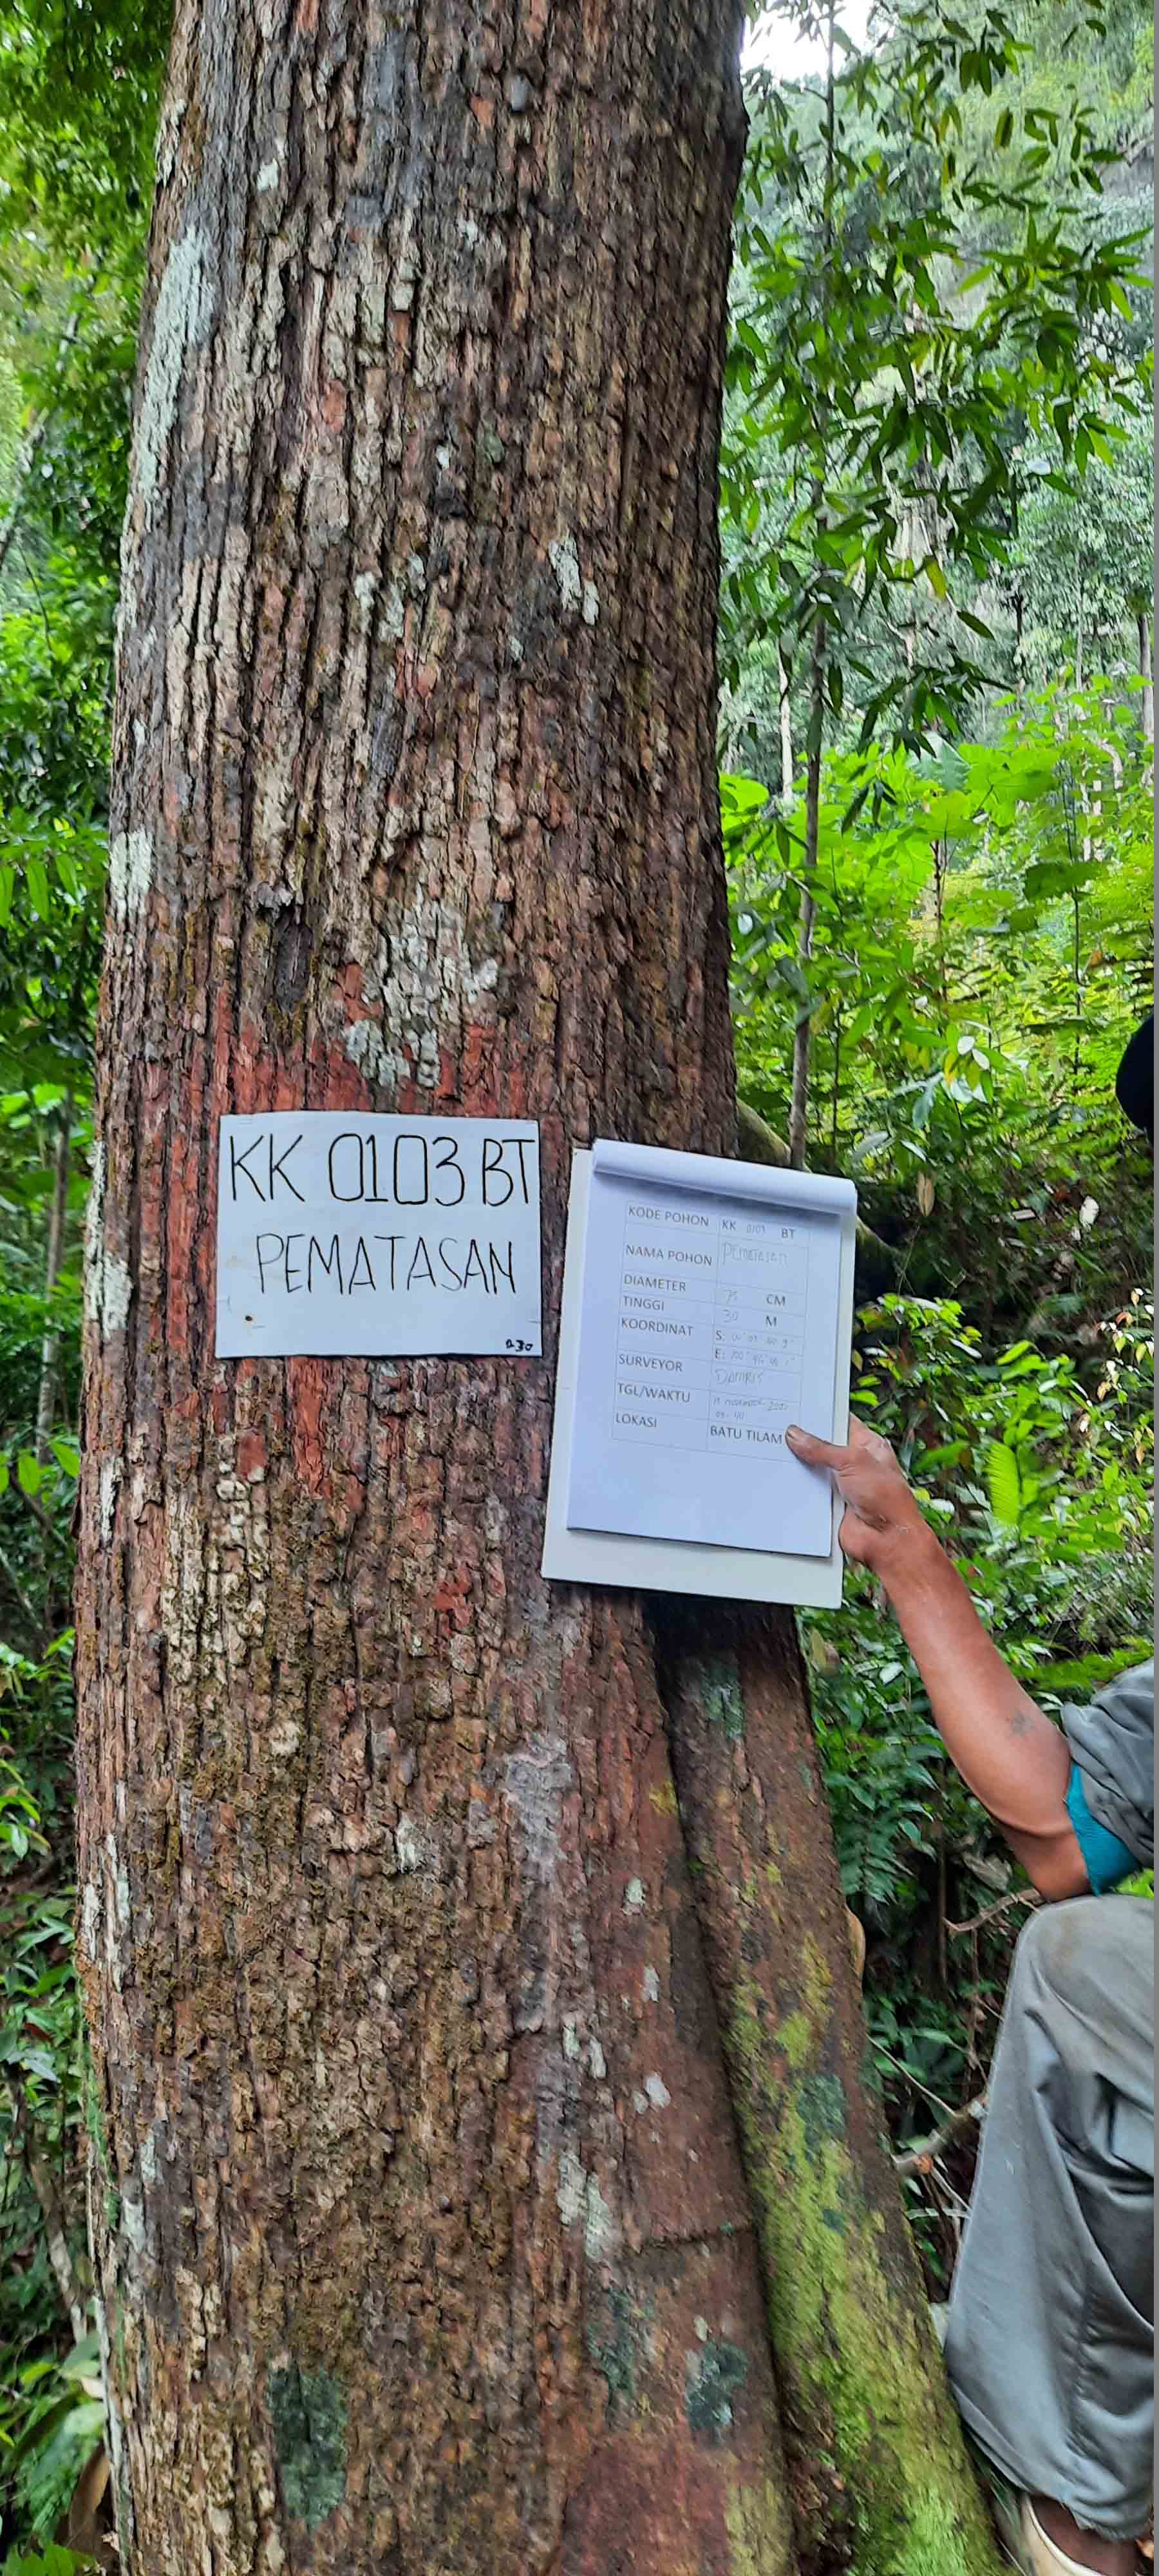 KK 0103 BT
PEMATASAN
230
KODE POHON KK 0103 BT
NAMA POHON Pematasan
DIAMETER 75 CM
TINGGI 30 M
KOORDINAT S:
E:
SURVEYOR DAMRIS
TGL/WAKTU November
LOKASI BATU TILAM